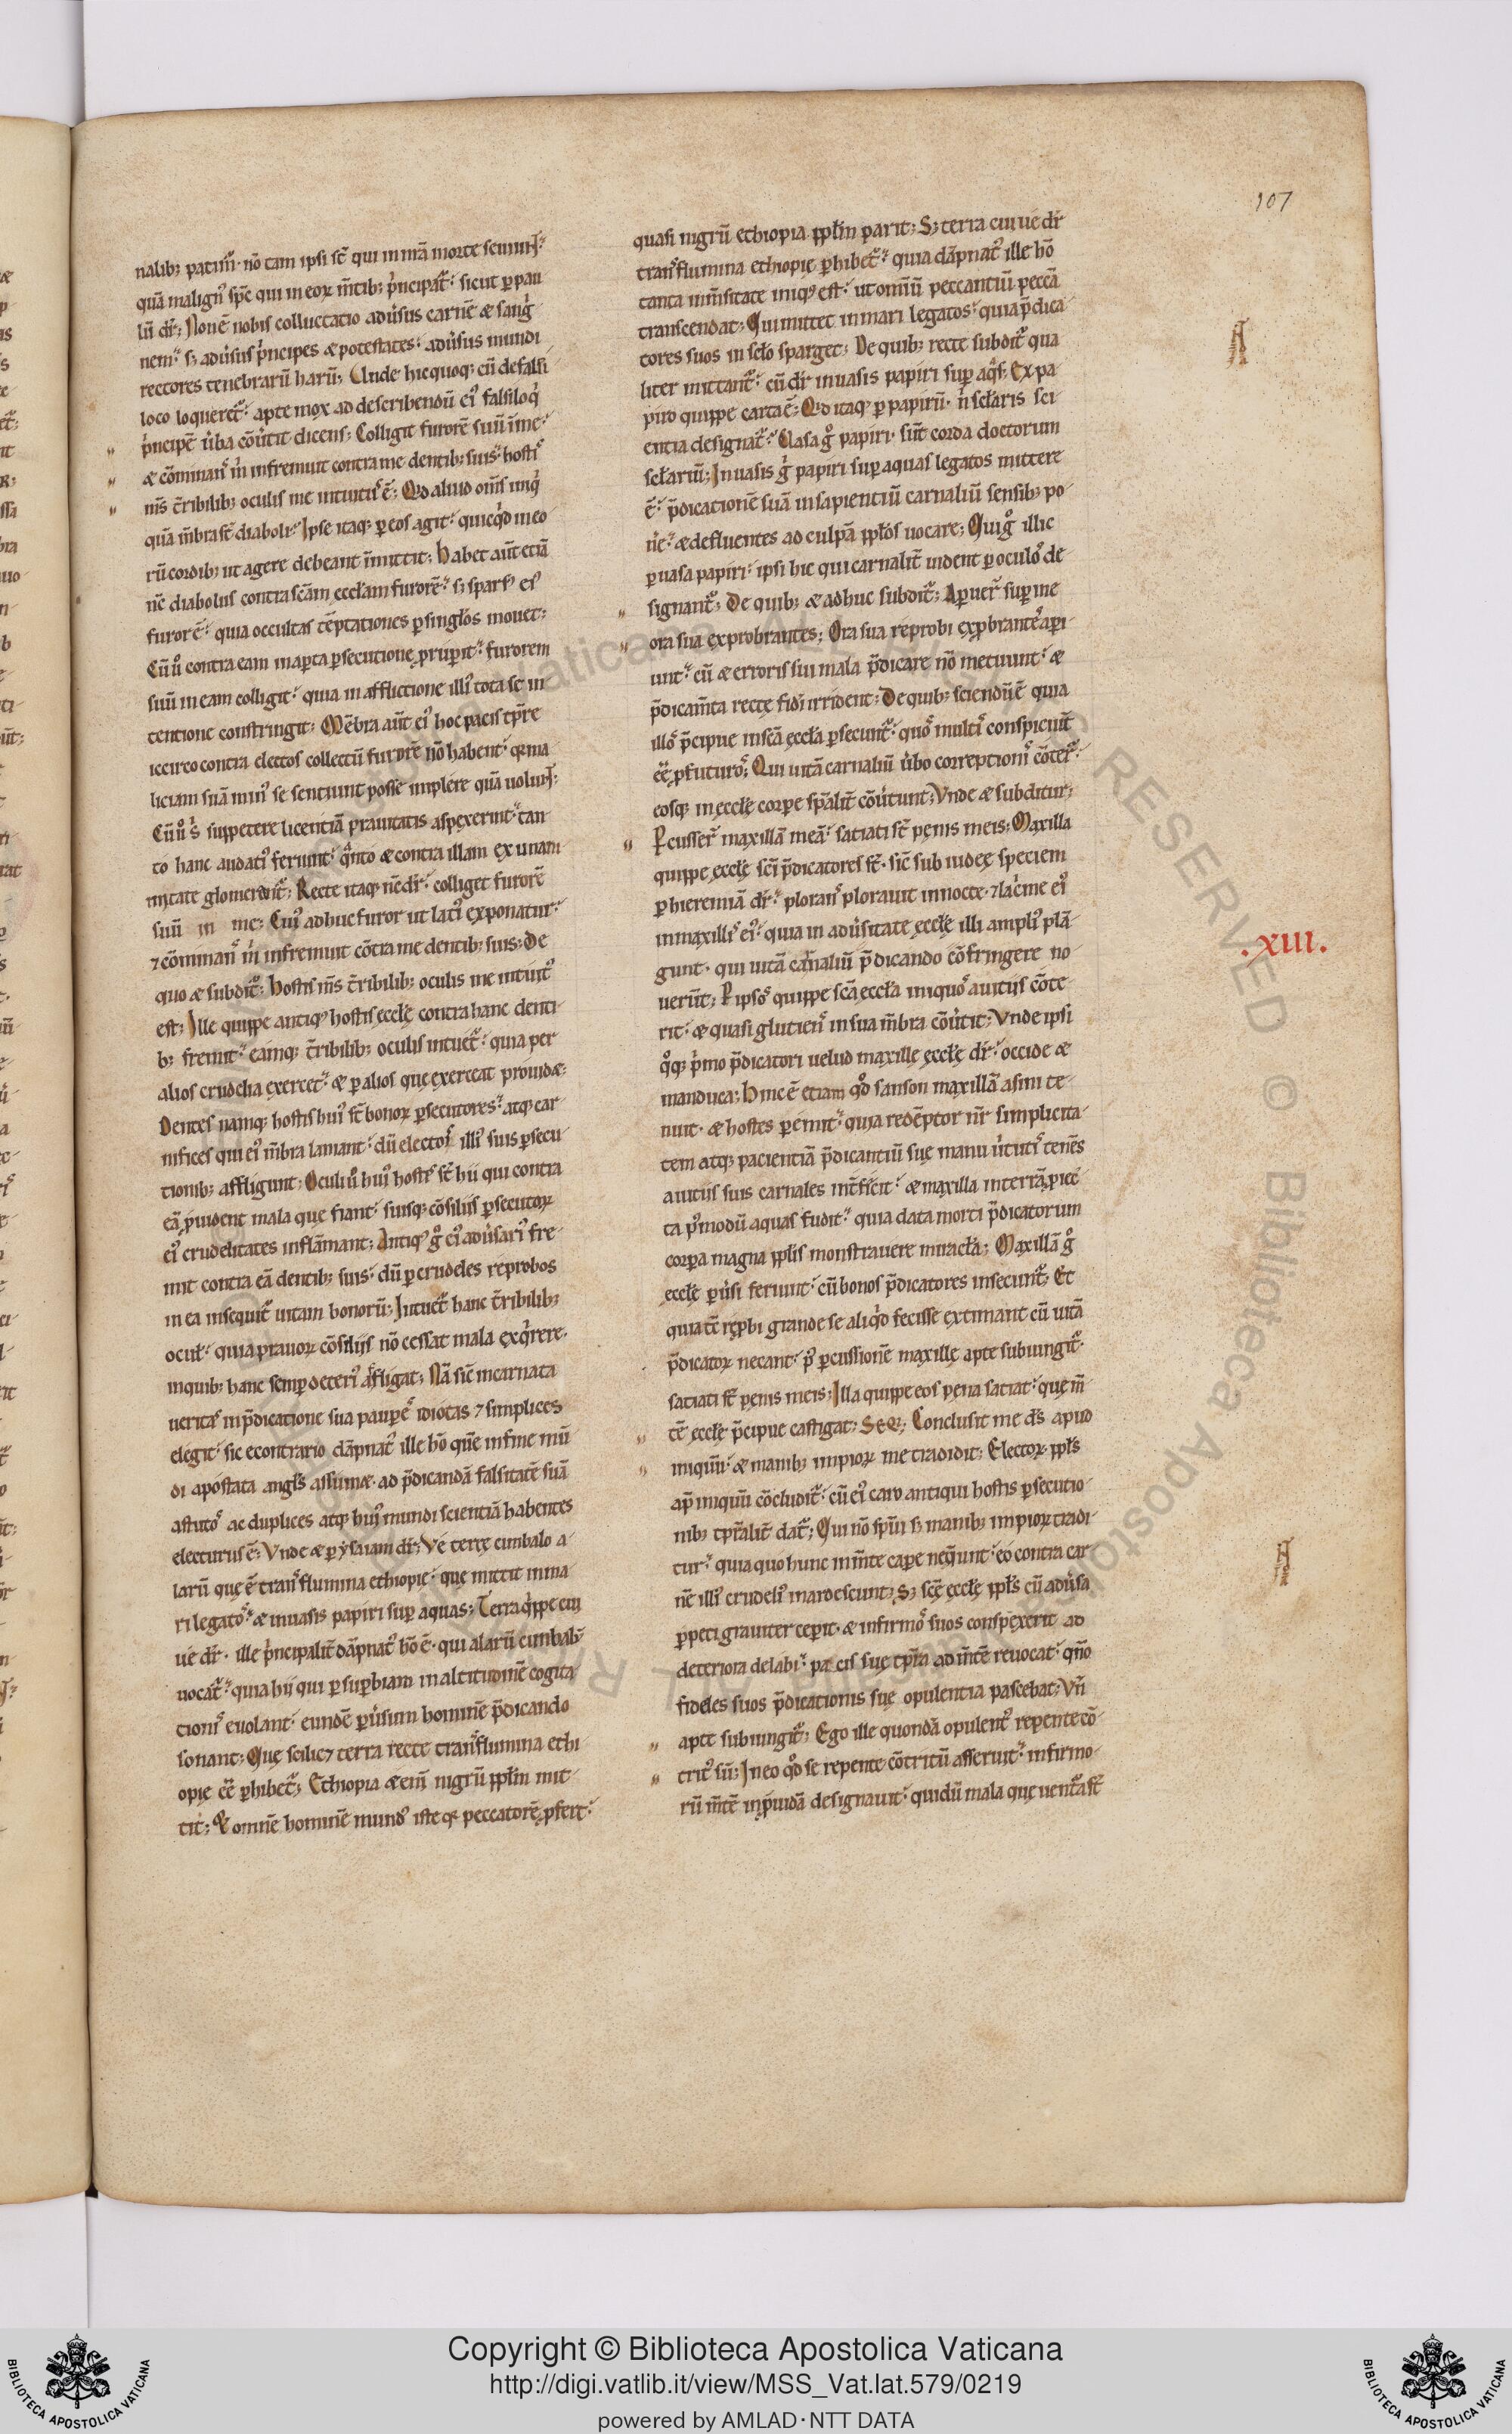 107
nalib; patim᷑· nō tam ipsi st̄ qui in mā morte seuiunt·
quā malign᷒ sp̄c qui in eoꝝ m̄tib; p̍ncipat᷑· sicut ꝑ pau
lū dr̄; Non ē nobis colluctatio adu̍sus carnē & sang̍
nem· s; adu̍sus p̍ncipes & potestates· adu̍sus mundi
rectores tenebrarū harū; Unde hic quoq; cū de falsi
loco loqueret᷑· apte mox ad describendū ei᷒ falsiloq̍
p̍ncipē u̍ba cōu̍tit dicens; Colligit furorē suū ī me·
& cōminans m̍ infremuit contra me dentib; suis· hostis
m̄s t̄ribilib; oculis me intuit᷒ ē; Qd aliud om̄s iniq̍
quā m̄bra st̄ diaboli· Ipse itaq; ꝑ eos agit· quicq̍d in eo
rū cordib; ut agere debeant īmittit; Habet aūt etiā
nc̄ diabolus contra scām eccl̄am furorē· s; spars᷒ ei᷒
furor ē· quia occultas tēptationes ꝑ singl̄os mouet;
Cū ů contra eam in aꝑta ꝑsecutione prūpit· furorem
suū in eam colligit· quia in afflictione illi᷒ tota se in
tentione constringit; Mēbra aūt ei᷒ hoc pacis tp̄re
iccirco contra electos collectū furorē nō habent· qꝛ ma
liciam suā min᷒ se sentiunt posse implere quā uolunt;
Cū ů s̍ suppetere licentiā prauitatis aspexerint· tan
to hanc audati᷒ feriunt· q̍nto & contra illam ex unani
mitate glomerant᷑; Recte itaq; nc̄ dr̄· colliget furorē
suū in me; Cui᷒ adhuc furor ut lati᷒ exponatur·
⁊ cōminans m̍ infremuit cōtra me dentib; suis; De
quo & subdit᷑; Hostis m̄s t̄ribilib; oculis me intuit᷒
est; Ille quippe antiq᷒ hostis eccl̄ę contra hanc denti
b; fremit· eamq; t̄ribilib; oculis intuet᷑· quia per
alios crudelia exercet· & ꝑ alios quę exerceat prouid&;
Dentes namq; hostis hui᷒ st̄ bonoꝝ ꝑsecutores· atq; car
nifices qui ei᷒ m̄bra laniant· dū electos illi᷒ suis ꝑsecu
tionib; affligunt; Oculi ů hui᷒ hostis st̄ hii qui contra
eā ꝓuident mala que fiant· suisq; cōsiliis ꝑsecutoꝝ
ei᷒ crudelitates inflāmant; Antiq᷒ g̊ ei᷒ adu̍sari᷒ fre
mit contra eā dentib; suis· dū ꝑ crudeles reprobos
in ea insequit᷑ uitam bonorū; Intuet᷑ hanc t̄ribilib;
ocul̄· quia prauoꝝ cōsiliis nō cessat mala exq̍rere·
in quib; hanc semꝑ deteri᷒ affligat; Nā sic̄ incarnata
ueritas in p̄dicatione sua pauꝑes idiotas ⁊ simplices
elegit· sic econtrario dāpnat᷒ ille hō quē in fine mū
di apostata angl̄s assum&· ad p̄dicandā falsitatē suā
astutos ac duplices atq; hui᷒ mundi scientiā habentes
electurus ē; Vnde & ꝑ ysaiam dr̄; Vę terrę cimbalo a
larū quę ē trans flumina ethiopię· quę mittit in ma
ri legatos· & in uasis papiri suꝑ aquas; Terra q̍ppe cui
uę dr̄· ille p̍ncipalit̄ dāpnat᷒ hō ē· qui alarū cimbalū
uocat᷑· quia hii qui ꝑ suꝑbiam in altitudinē cogita
tionis euolant· eundē ꝑu̍sum hominē p̄dicando
sonant; Quę scilic⁊ terra recte trans flumina ethi
opię eē̄ ꝑhibet᷑; Ethiopia &eni̅ nigrū ppl̄m mit
tit; & omnē hominē mund᷒ iste qꝛ peccatorē ꝓfert·
quasi nigrū ethiopia ppl̄m parit; S; terra cui uę dr̄
trans flumina ethiopię ꝑhibet᷑· quia dāpnat᷒ ille hō
tanta īm̄sitate iniq᷒ est· ut omīū peccantiū peccā
transcendat; Qui mittet in mari legatos· quia p̄dica
tores suos in scl̄o sparget; De quib; recte subdit᷑ qua
liter mittant᷑· cū dr̄ in uasis papiri suꝑ aq̍s; Ex pa
piro quippe carta ē; Qd itaq; ꝑ papirū· n̍ scl̄aris sci
entia designat᷑· Vasa g̊ papiri· sūt corda doctorum
scl̄ariū; In uasis g̍ papiri suꝑ aquas legatos mittere
ē· p̄dicationē suā in sapientiū carnaliū sensib; po
ne̍· & defluentes ad culpā ppl̄os uocare; Qui g̊ illic
ꝑ uasa papiri· ipsi hic qui carnalit̄ uident ꝑ oculos de
signant᷑; De quib; & adhuc subdit᷑; Aꝑuer̄ suꝑ me
ora sua exprobrantes; Ora sua reprobi exꝓbrantes aꝑi
unt· cū & erroris sui mala p̄dicare nō metuunt· &
p̄dicam̄ta rectę fidi irrident; De quib; sciendū ē quia
illos p̄cipue in scā eccl̄a ꝑsecunt᷑· quos multis conspiciūt
eē̄ ꝓfuturos; Qui uitā carnaliū u̍bo correptionis cōter̄·
eosq; in eccl̄ę corꝑe sp̄alit̄ cōu̍tunt; Vnde & subditur;
Ꝑcusser̄ maxillā meā· satiati st̄ penis meis; Maxilla
quippe eccl̄ę sc̄i p̄dicatores st̄· sic̄ sub iudęę speciem
ꝑ hieremiā dr̄· plorans plorauit in nocte· ⁊ lac̍me ei᷒
in maxillis ei᷒· quia in adu̍sitate eccl̄ę illi ampli᷒ plā
gunt· qui uitā carnaliū p̄dicando cōfringere no
uerūt; P ipsos quippe scā eccl̄a iniquos a uitiis cōte
rit· & quasi glutiens in sua m̄bra cōu̍tit; Vnde ipsi
q̊q; p̍mo p̄dicatori uelud maxillę eccl̄ę dr̄· occide &
manduca; Hinc ē etiam qd̊ sanson maxillā asini te
nuit· & hostes ꝑemit· quia redēptor nr̄ simplicita
tem atq; pacientiā p̄dicantiū suę manu u̍tutis tenēs
a uitiis suis carnales int̄ficit· & maxilla in terrā ꝓiec
ta p᷒modū aquas fudit· quia data morti p̄dicatorum
corꝑa magna ppl̄is monstrauere miracl̄a; Maxillā g̊
eccl̄ę ꝑu̍si feriunt· cū bonos p̄dicatores insecunt᷑; Et
quia tc̄ reꝓbi grande se aliq̍d fecisse extimant cū uitā
p̄dicatoꝝ necant· p᷒ ꝑcussionē maxillę apte subiungit᷑·
satiati st̄ penis meis; Illa quippe eos pena satiat· quę m̄
tē eccl̄ę p̄cipue castigat; Seq᷑; Conclusit me d̄s apud
iniquū· & manib; impioꝝ me tradidit; Electoꝝ ppl̄s
ap̄ iniquū cōcludit᷑· cū ei᷒ caro antiqui hostis ꝑsecutio
nib; tp̄ralit̄ dat᷑; Qui nō sp̄ui s; manib; impioꝝ tradi
tur· quia quo hunc in m̄te caꝑe neq̄unt· eo contra car
nē illi᷒ crudeli᷒ inardescunt; S; scę eccl̄ę ppl̄s cū adu̍sa
ꝑpeti grauiter ceꝑit· & infirmos suos conspexerit ad
deteriora delabi· pacis suę tp̄ra ad m̄tē reuocat· qn̄o
fideles suos p̄dicationis suę opulentia pascebat; Vn̄
apte subiungit᷑; Ego ille quondā opulent᷒ repente cō
trit᷒ sū; In eo qd̊ se repente cōtritū asseruit· infirmo
rū m̄tē inꝓuidā designauit· qui dū mala quę uent᷑a st̄
.XIII.
Copyright © Biblioteca Apostolica Vaticana
http://digi.vatlib.it/view/MSS_Vat.lat.579/0219
powered by AMLAD·NTT DATA
BIBLIOTECA APOSTOLICA VATICANA
BIBLIOTECA APOSTOLICA VATICANA